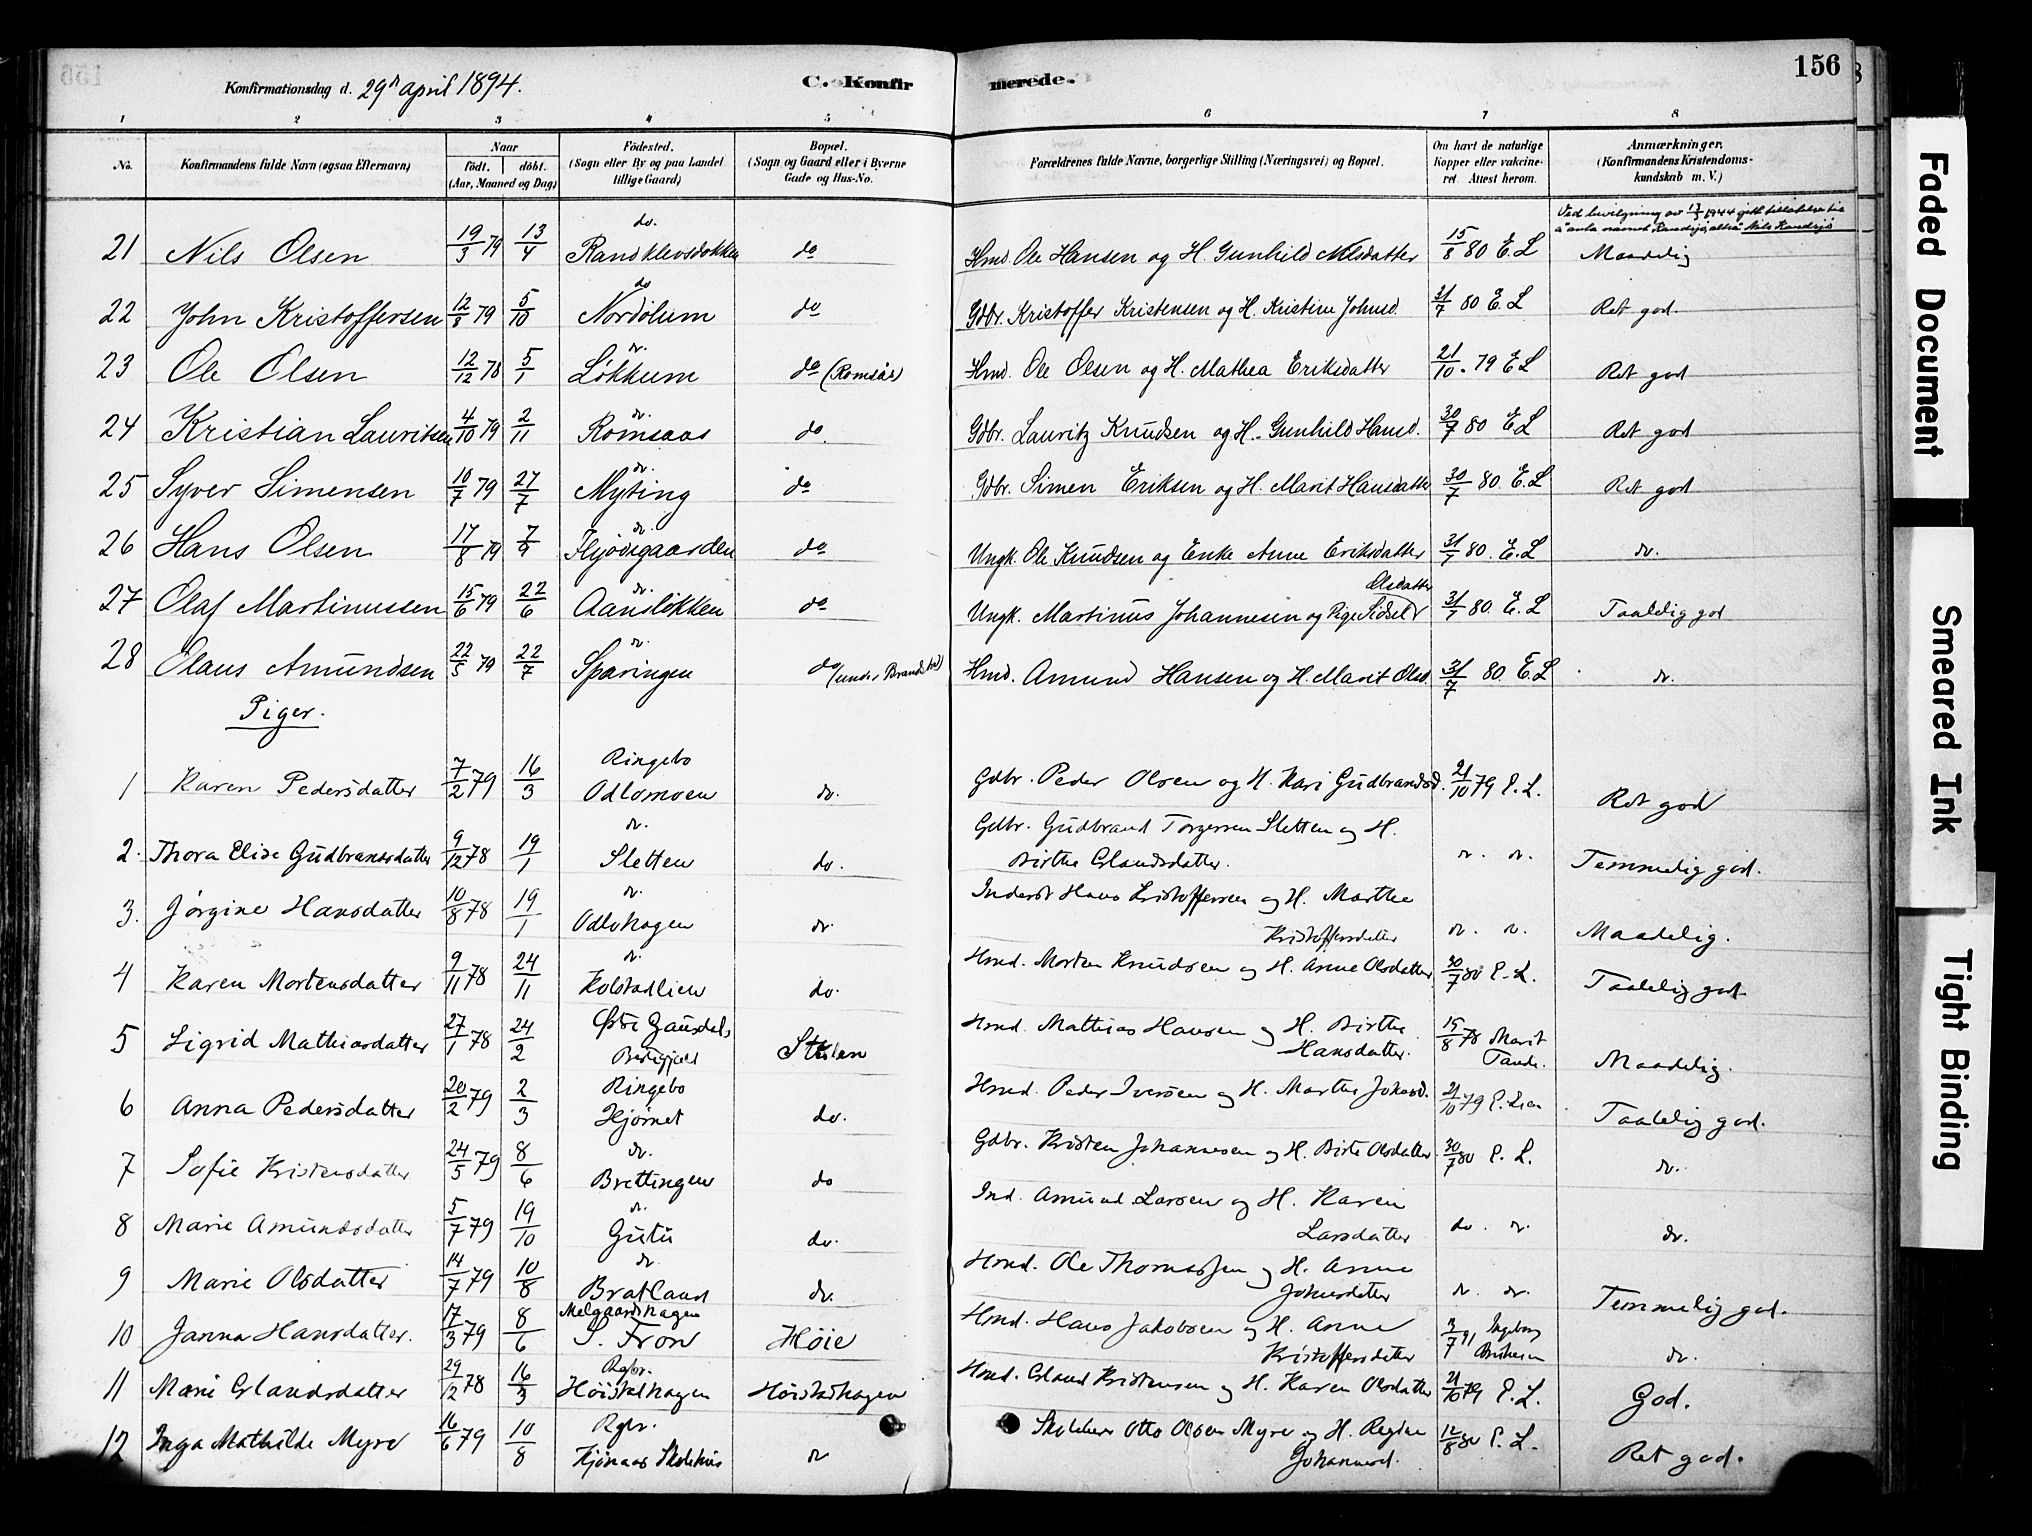 156
Konfirmationsdag d. 29de april 1894. C. Konfirmerede.
1 2 3 4 5 6 7 8
No. Konfirmandens fulde Navn (ogsaa Efternavn) Naar födt. döbt. (Aar, Maaned og Dag) Födested. (Sogn eller By og paa Landet tillige Gaard) Bopæl. (Sogn og Gaard eller i Byerne Gade og Hus-No. Forældrenes fulde Navne, borgerlige Stilling (Næringsvei) og Bopæl. Om havt de naturlige Kopper eller vakcineret. Attest herom. Anmærkninger. (Konfirmandens Kristendomskundskab m. V.)
Ved bevilgning av 17/3 1944 gitt tillatelse til å anta navnet Randsjö, altså Nils Randsjö
21 Nils Olsen 19/3 79 13/4 do. Randklevsdokken do Hmd. Ole Hansen og H. Gunhild Nilsdatter 15/8 80 E. L Maadelig
22 John Kristoffersen 12/8 79 5/10 do Nordolum do Gdbr. Kristoffer Kristensen og H. Kristine Johnsd. 31/7 80 E. L Ret god.
23 Ole Olsen 12/12 78 5/1 do. Løkkum do (Romsås) Hmd. Ole Olsen og H. Mathea Eriksdatter 21/10. 79 E L Ret god
24 Kristian Lauritsen 4/10 79 2/11 do. Romsaas do. Gdbr. Lauritz Knudsen og H. Gunhild Hansd. 30/7 80 E L Ret god
25 Syver Simensen 10/7 79 27/7 do. Myting do Gdbr. Simen Eriksen og H. Marit Hansdatter 30/7 80. E. L Ret god
26 Hans Olsen 17/8 79 7/9 do. Flyodigaarden do Ungk. Ole Knudsen og Enke Anne Eriksdatter 31/7 80. E. L do.
27 Olaf Martinussen 15/6 79 22/6 do. Aansløkken do Ungk. Martinus Johannesen og Pige Sidsel Olsdatter 31/7 80. E. L Taalelig god
28 Olaus Amundsen 22/5 79 22/7 do Sparingen do (under Brandstad) Hmd. Amund Hansen og H. Marit Olsd. 31/7 80. E. L do.
Piger.
1 Karen Pedersdatter 7/2 79 16/3 Ringebo Odlomoen do. Gdbr. Peder Olsen og H. Kari Gudbrandsd. 21/10 79 E. L. Ret god
2. Thora Elise Gudbrandsdatter 9/12 78 19/1 do. Sletten do. Gdbr. Gudbrand Torgersen Sletten og H. Birthe Erlandsdatter. do. do. Temmelig god.
3. Jørgine Hansdatter 10/8 78 19/1 do. Odlohagen do. Inderst Hans Kristoffersen og H. Marthe Kristoffersdatter do. do. Maadelig.
4 Karen Mortensdatter 9/11 78 24/11 do. Kolstadlien do. Hmd. Morten Knudsen og H. Anne Olsdatter 30/7 80 E. L. Taalelig god
5 Sigrid Mathiasdatter 27/1 78 24/2 Østre Gausdal Hmd. Mathias Hansen og H. Birthe Hansdatter. 15/8 78 Marit Tande. Maadelig.
6 Anna Pedersdatter 20/2 79 2/3 Ringebo Hjørnet do. Hmd. Peder Iversen og H. Marthe Johansd. 21/10 79 E. Lien Taalelig god.
7 Sofie Kristensdatter 24/5 79 8/6 do. Brettingen do Gdbr. Kristen Johannesen og H. Birte Olsdatter 30/7 80 E. L. do.
8 Marie Amundsdatter 5/7 79 19/10 do. Gutu do. Ind. Amund Larsen og H. Karen Larsdatter do. do. do.
9 Marie Olsdatter 14/7 79 10/8 do. Bratland do. Hmd. Ole Thomassen og H. Anne Johnsdatter do. do. Temmelig god.
10 Janna Hansdatter. 17/3 79 8/6 Melgaardshagen S. Fron Høie Hmd. Hans Jakobsen og H. Anne Kristoffersdatter 3/7 91 Ingeborg do.
11 Mari Erlandsdatter 29/12 78 16/3 Rgbr. Høistadhagen Høistadhagen Hmd. Erland Kristensen og H. Karen Olsdatter 21/10 79 E. L. God.
12 Inga Mathilde Myre 16/6 79 10/8 Rgbr. Kjønaas Skolehus do Skolelærer Otto Olsen Myre og H. Regine Johannesd. 12/8 80 E. L. Ret god.
Faded Document
Smeared Ink
Tight Binding